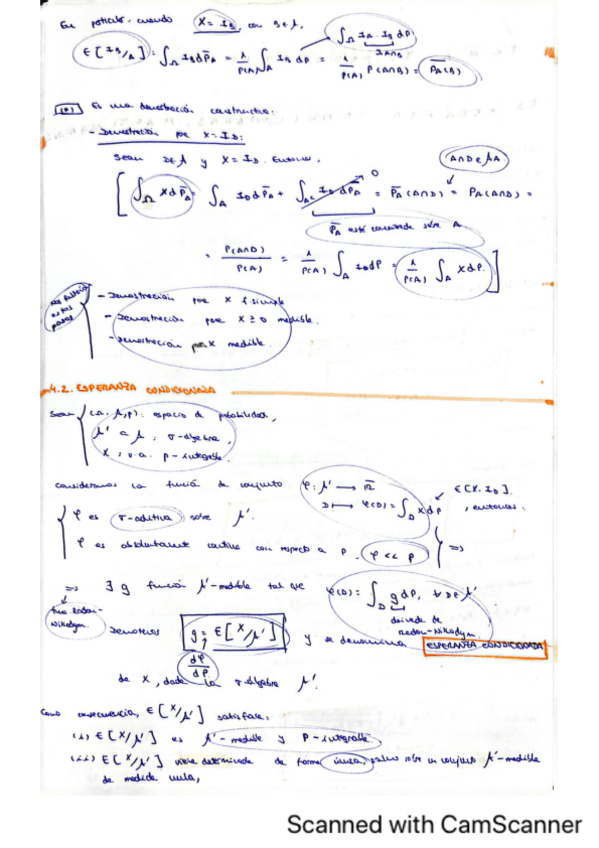 En particular, cuando X = I_B, con B ∈ 𝒜,
E[I_B/A] = ∫_Ω I_B dP̄_A = 1/P(A) ∫_A I_B dP = 1/P(A) P(A∩B) = P̄_A(B)
∫_Ω I_A · I_B dP
I_A∩B
(*) Es una demostración constructiva:
- Demostración por X = I_D:
Sean D ∈ 𝒜 y X = I_D. Entonces,
A∩D ∈ 𝒜_A
[ ∫_Ω X dP̄_A = ∫_A I_D dP̄_A + ∫_A^c I_D dP̄_A = P̄_A(A∩D) = P_A(A∩D) =
0
P̄_A está concentrada sobre A
= P(A∩D)/P(A) = 1/P(A) ∫_A I_D dP = 1/P(A) ∫_A X dP. ]
- Demostración por X f. simple
- Demostración por X ≥ 0 medible.
- Demostración por X medible.
estos
pasos
4.2. ESPERANZA CONDICIONADA
Sean (Ω, 𝒜, P): espacio de probabilidad,
𝒜' ⊂ 𝒜 : σ-álgebra,
X : v.a. P-integrable.
Consideramos la función de conjunto φ: 𝒜' → R̄
D → φ(D) = ∫_D X dP, entonces.
E[X·I_D].
φ es σ-aditiva sobre 𝒜'.
φ es absolutamente continua con respecto a P. φ << P
=>
=> ∃ g función 𝒜'-medible tal que φ(D) = ∫_D g dP, ∀ D ∈ 𝒜'
Radon-
Nikodym
derivada de
Radon-Nikodym
Denotemos g := E[X/𝒜'] y se denomina ESPERANZA CONDICIONADA
dφ/dP
de X, dada la σ-álgebra 𝒜'.
Como consecuencia, E[X/𝒜'] satisface,
(i) E[X/𝒜'] es 𝒜'-medible y P-integrable
(ii) E[X/𝒜'] viene determinada de forma única, salvo sobre un conjunto 𝒜'-medible
de medida nula,
Scanned with CamScanner